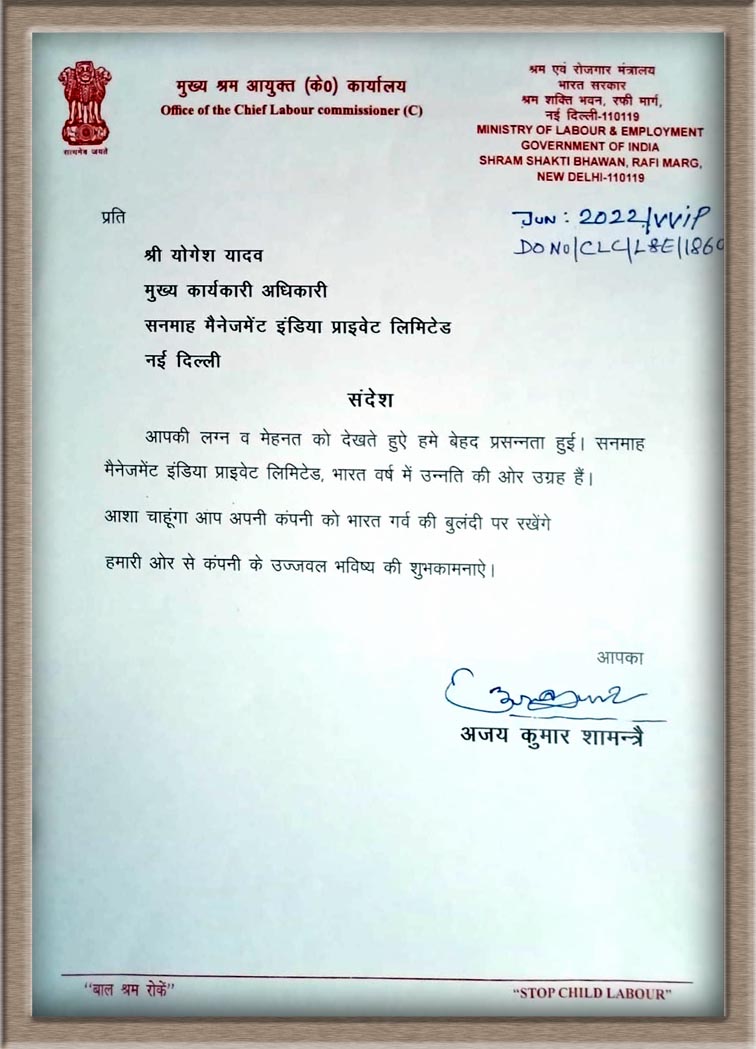 मुख्य श्रम आयुक्त (के0) कार्यालय
Office of the Chief Labour commissioner (C)
सत्यमेव जयते
श्रम एवं रोजगार मंत्रालय
भारत सरकार
श्रम शक्ति भवन, रफी मार्ग,
नई दिल्ली-110119
MINISTRY OF LABOUR & EMPLOYMENT
GOVERNMENT OF INDIA
SHRAM SHAKTI BHAWAN, RAFI MARG,
NEW DELHI-110119
Jun: 2022/VViP
DO NO/CLC/L&E/1860
प्रति
श्री योगेश यादव
मुख्य कार्यकारी अधिकारी
सनमाह मैनेजमेंट इंडिया प्राइवेट लिमिटेड
नई दिल्ली
संदेश
आपकी लग्न व मेहनत को देखते हुऐ हमे बेहद प्रसन्नता हुई। सनमाह
मैनेजमेंट इंडिया प्राइवेट लिमिटेड, भारत वर्ष में उन्नति की ओर उग्रह हैं।
आशा चाहूंगा आप अपनी कंपनी को भारत गर्व की बुलंदी पर रखेंगे
हमारी ओर से कंपनी के उज्जवल भविष्य की शुभकामनाऐ।
आपका
अजय कुमार शामन्त्रै
“बाल श्रम रोकें”
“STOP CHILD LABOUR”